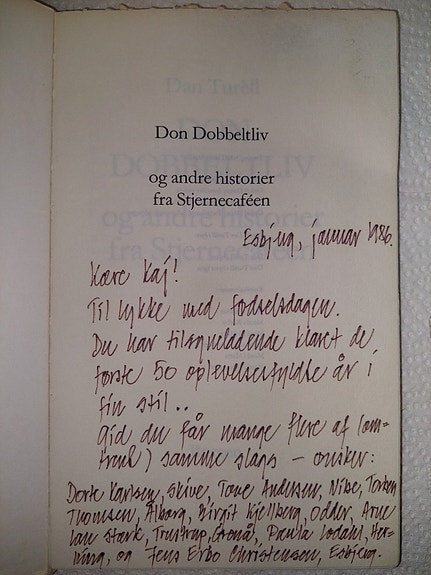 Dan Turéll
DON
DOBBELTLIV
Don Dobbeltliv
og andre historier
fra Stjernecaféen
og andre historier
fra Stjernecaféen
Esbjerg, januar 1986.
Kære Kaj!
Til lykke med fødselsdagen.
Du har tilsyneladende klaret de
første 50 oplevelsesfyldte år i
fin stil..
Gid du får mange flere af (om-
trent) samme slags – ønsker:
Dorte Karlsen, Skive, Tove Andersen, Nibe, Torben
Thomsen, Ålborg, Birgit Kjellberg, Odder, Arne
Stærk, Trustrup, Grenå, Paula Lodahl, Her-
ning, og Jens Erbo Christensen, Esbjerg.